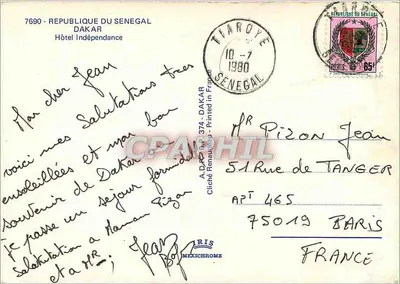 7690 - REPUBLIQUE DU SENEGAL
DAKAR
Hôtel Indépendance
Mon cher Jean
voici mes Salutations tres
ensoleillées et mon bon
souvenir de Dakar
je passe un sejour formidable
Salutation a Maman Pizon
et a Mr;
Jean
THIAROYE
10-7
1980
SENEGAL
REPUBLIQUE DU SENEGAL
65F
374 - DAKAR
Printed in France
IRIS
MEXICHROME
CPAPHIL
Mr PIZON Jean
51 Rue de TANGER
APT 465
75019 PARIS
FRANCE